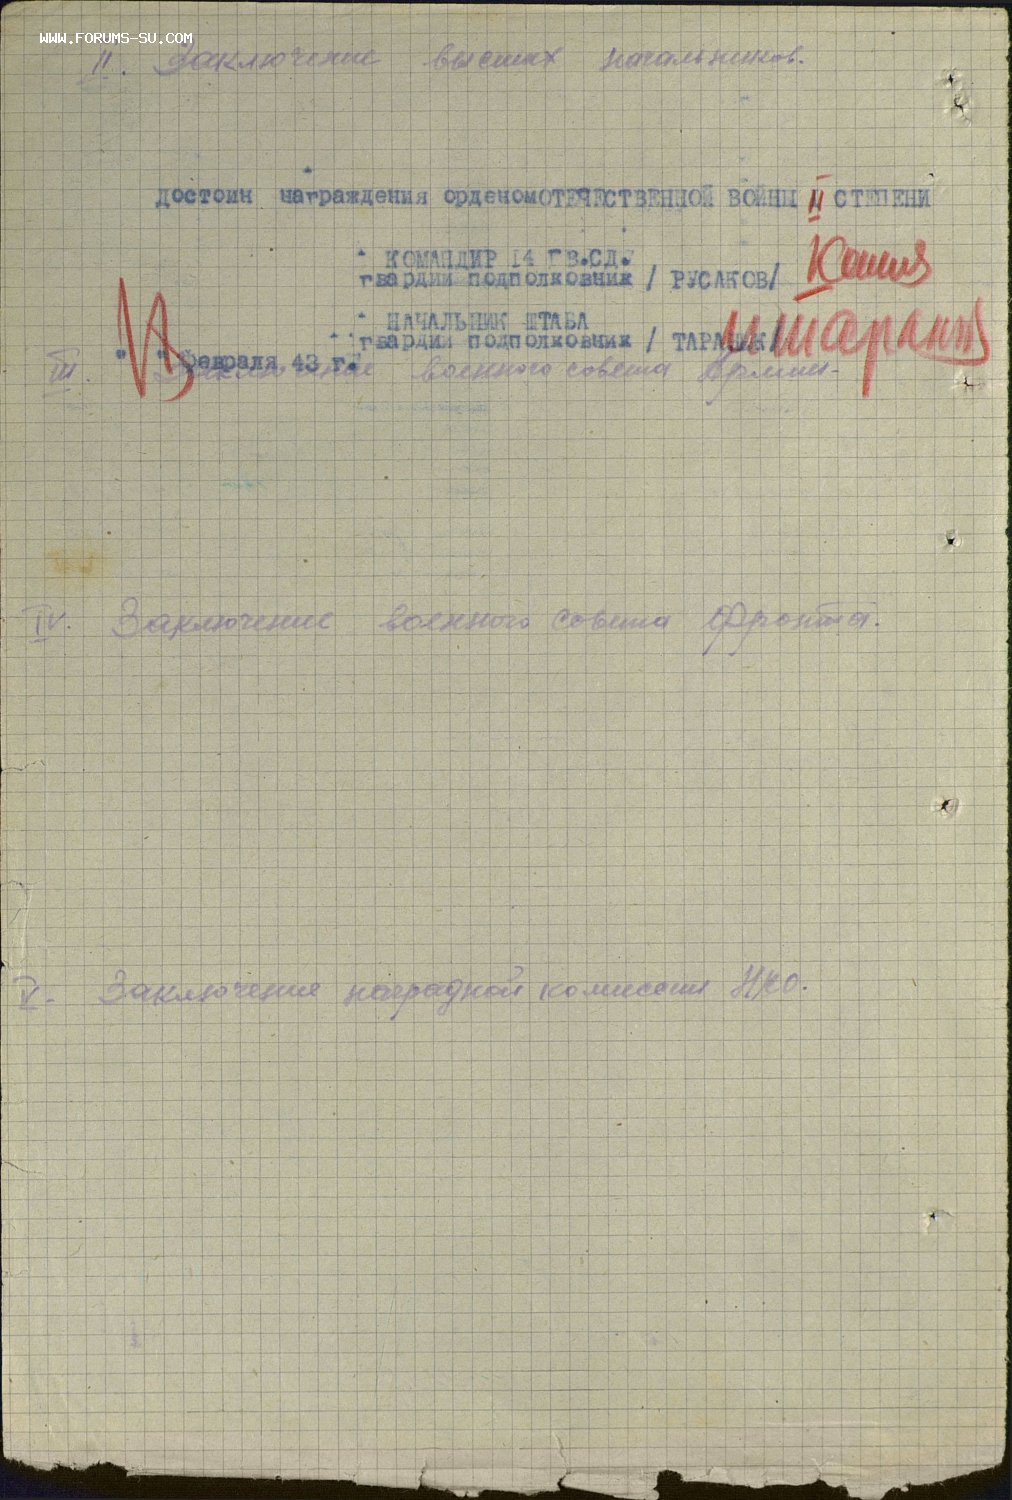 WWW.FORUMS-SU.COM
II. Заключение высших начальников.
достоин награждения орденом ОТЕЧЕСТВЕННОЙ ВОЙНЫ II СТЕПЕНИ
КОМАНДИР 14 ГВ.СД.
гвардии подполковник / РУСАКОВ/
НАЧАЛЬНИК ШТАБА
гвардии подполковник / ТАРАНИК/
" " февраля 43 г.
III. Заключение военного совета Армии.
IV. Заключение военного совета Фронта.
V. Заключение наградной комиссии НКО.